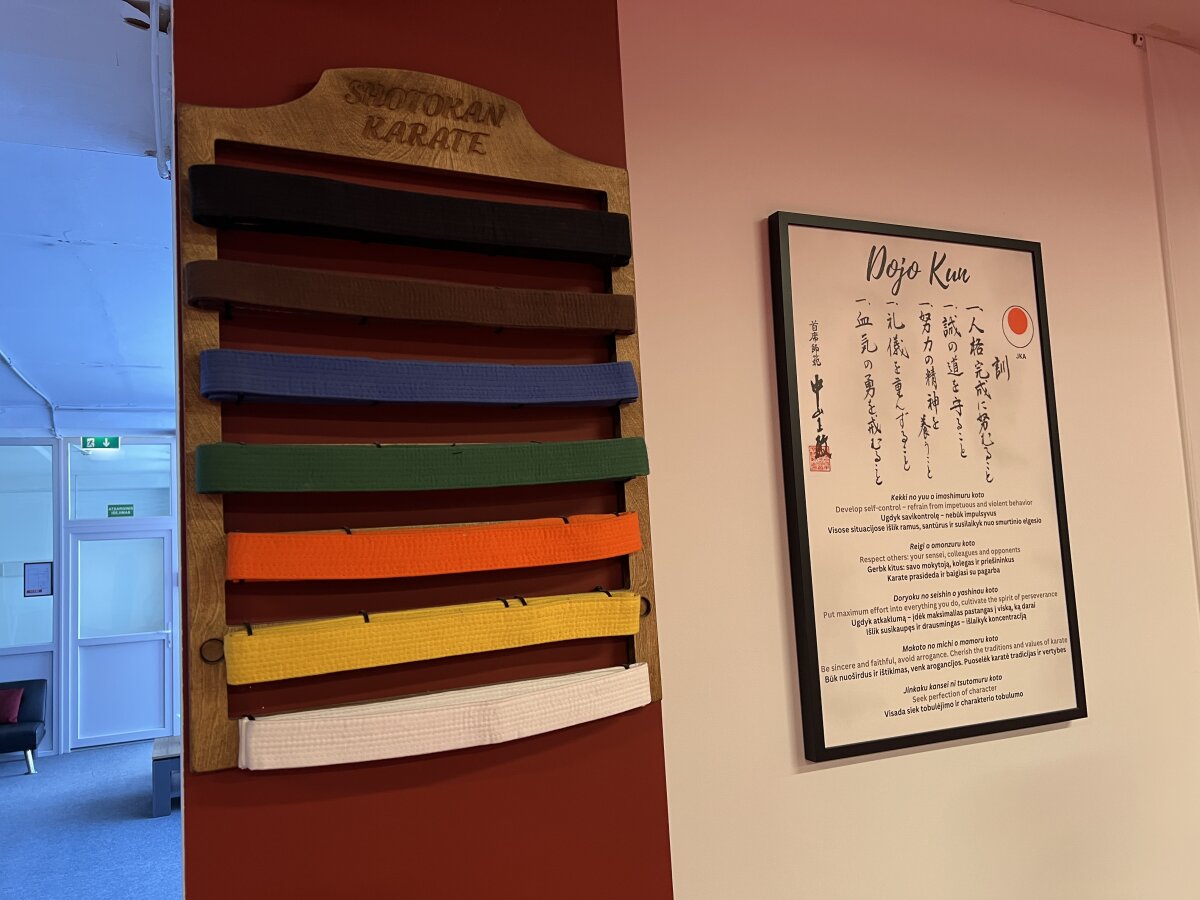 SHOTOKAN
KARATE
ATSARGINIS
IŠĖJIMAS
Dojo Kun
JKA
訓
一、人格完成に努むること
一、誠の道を守ること
一、努力の精神を養うこと
一、礼儀を重んずること
一、血気の勇を戒むること
首席師範 中山正敏
Kekki no yuu o imashimuru koto
Develop self-control – refrain from impetuous and violent behavior
Ugdyk savikontrolę – nebūk impulsyvus
Visose situacijose išlik ramus, santūrus ir susilaikyk nuo smurtinio elgesio
Reigi o omonzuru koto
Respect others: your sensei, colleagues and opponents
Gerbk kitus: savo mokytoją, kolegas ir priešininkus
Karate prasideda ir baigiasi su pagarba
Doryoku no seishin o yashinau koto
Put maximum effort into everything you do, cultivate the spirit of perseverance
Ugdyk atkaklumą – įdėk maksimalias pastangas į viską, ką darai
Išlik susikaupęs ir drausmingas – išlaikyk koncentraciją
Makoto no michi o mamoru koto
Be sincere and faithful, avoid arrogance. Cherish the traditions and values of karate
Būk nuoširdus ir ištikimas, venk arogancijos. Puoselėk karatė tradicijas ir vertybes
Jinkaku kansei ni tsutomuru koto
Seek perfection of character
Visada siek tobulėjimo ir charakterio tobulumo